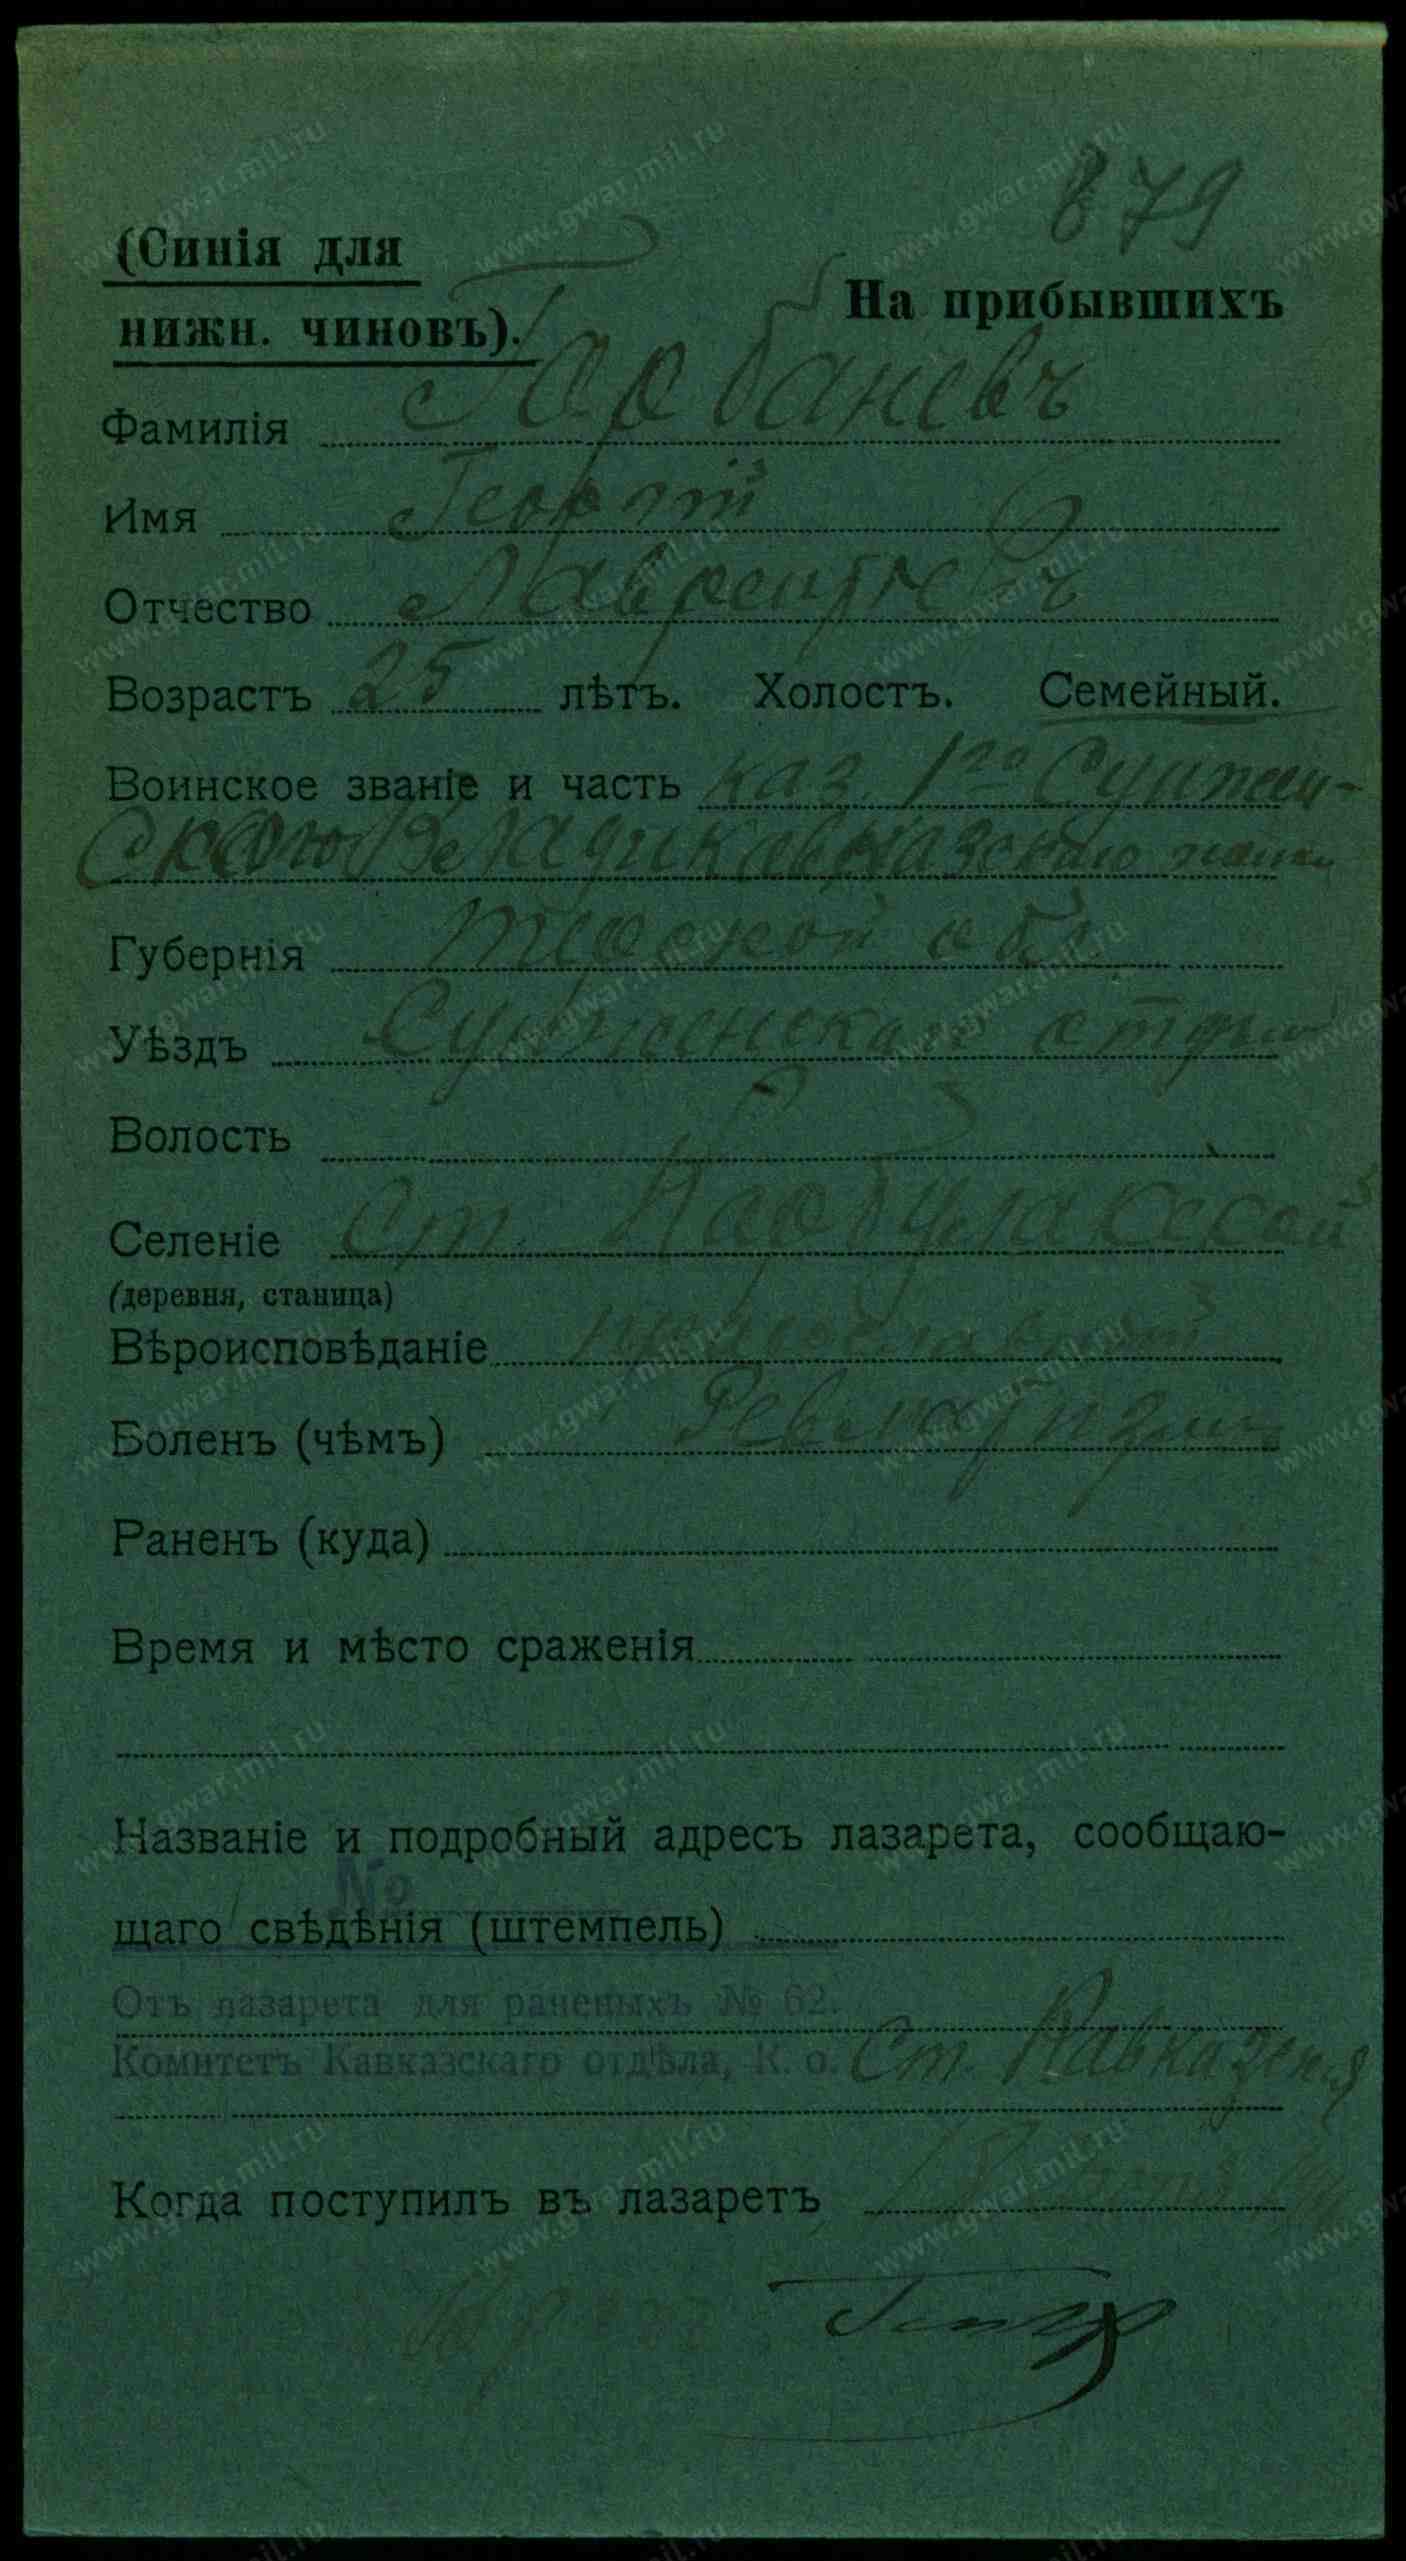 879
(Синія для
нижн. чиновъ).
На прибывшихъ
Фамилія Горбаневъ
Имя Георгій
Отчество Лаврентьевъ
Возрастъ 25 лѣтъ. Холостъ. Семейный.
Воинское званіе и часть каз. 1го Сунжен-
ско Владикавказскаго полка
Губернія Терской обл.
Уѣздъ Сунженскій отдѣл
Волость
Селеніе Ст. Карбулакской
(деревня, станица)
Вѣроисповѣданіе православный
Боленъ (чѣмъ)
Раненъ (куда)
Время и мѣсто сраженія
Названіе и подробный адресъ лазарета, сообщаю-
No
щаго свѣдѣнія (штемпель)
Отъ лазарета для раненыхъ № 62.
Комитетъ Кавказскаго отдѣла, К. о. Ст. Кавказская
Когда поступилъ въ лазаретъ